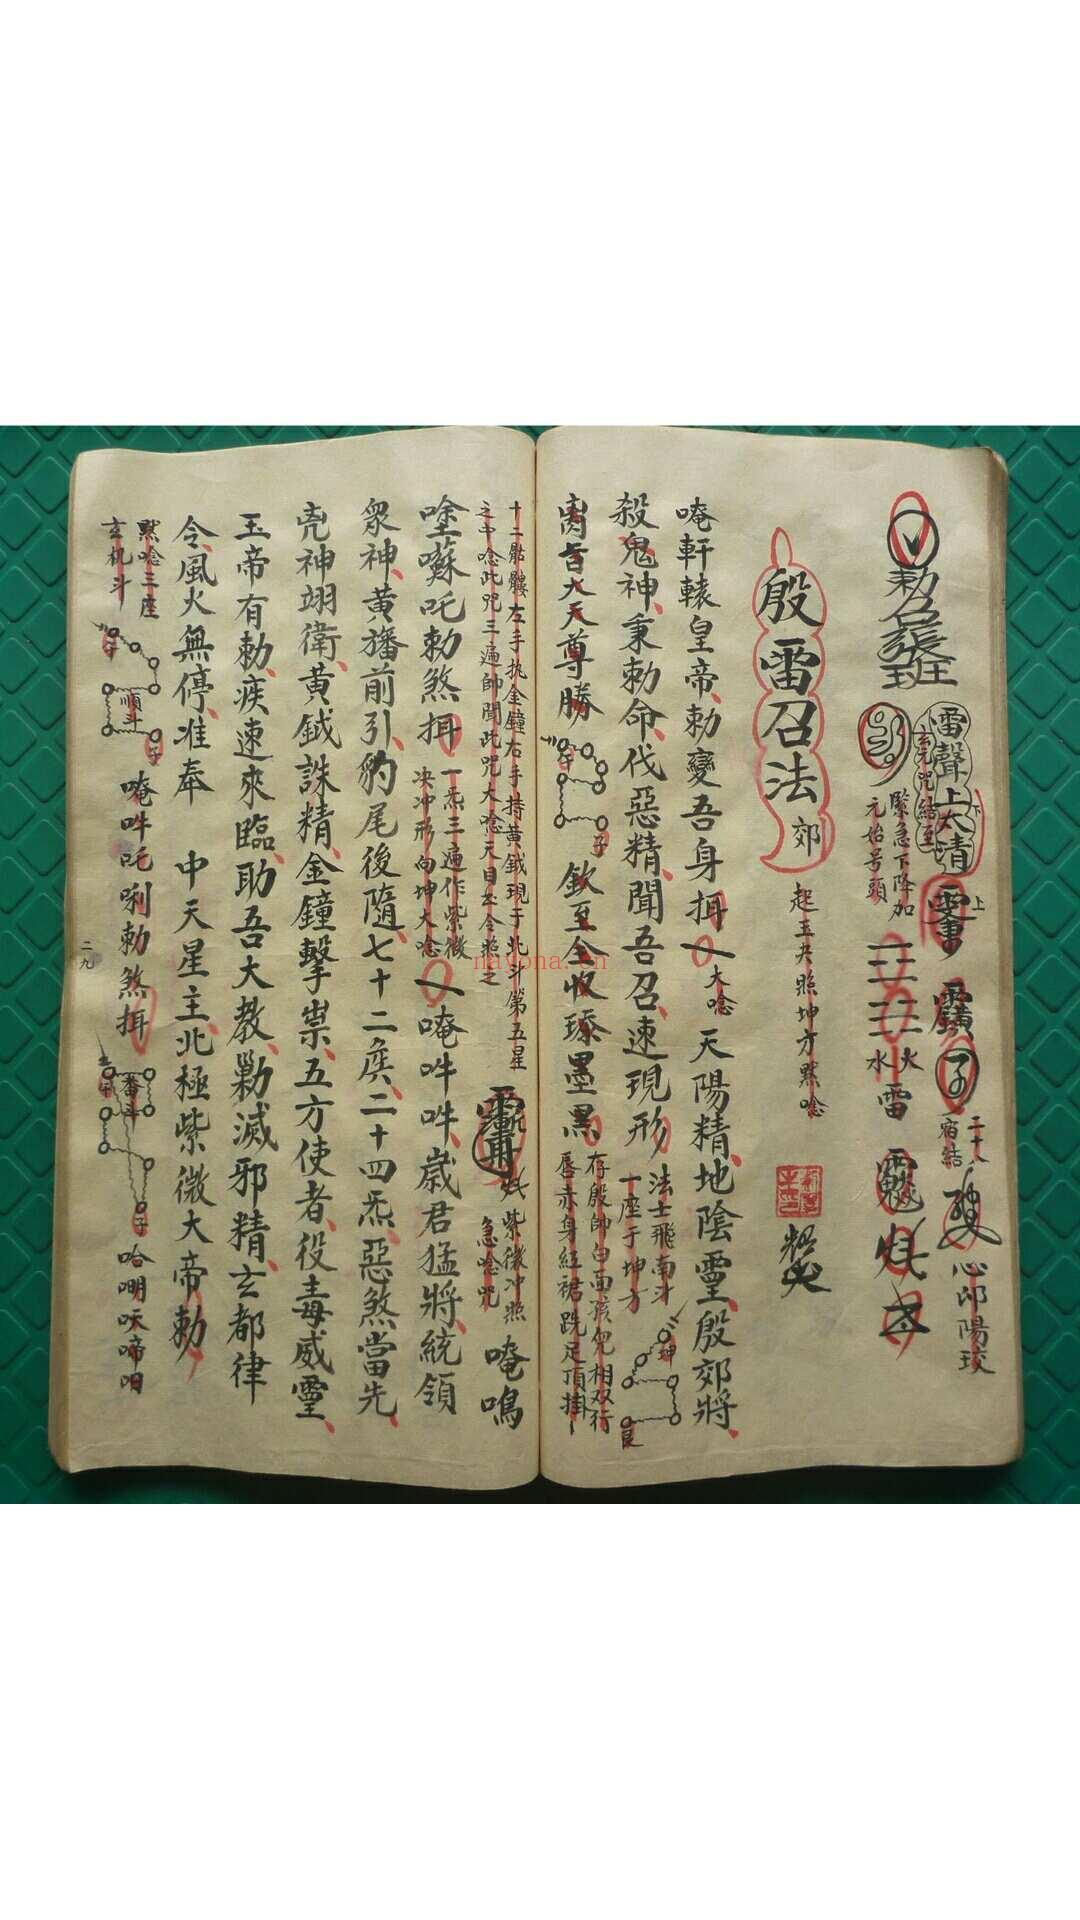 勅召張班
雷聲上大清
玄元咒結至
下
上
二十八
宿結
心印陽玫
緊急下降加
元始号頭
火
水
雷
殷雷召法
郊
起玉夬照坤方黙唸
唵軒轅皇帝勅變吾身揖
大唸
天陽精地陰靈殷郊將
殺鬼神秉勅命伐惡精聞吾召速現形
法士飛南斗
一座于坤方
坤
艮
天尊勝
午
子
欽至全收
墨黑
存殷帥白面孩兒相双行
唇赤身紅裙跣足頂掛
十二骷髏左手执金鐘右手持黃鉞現于北斗第五星
之中唸此咒三遍帥聞此咒大唸天目
紫微冲照
急唸咒
唵鳴
唑囌吒勅煞揖
一炁三遍作紫微
决冲形向坤大唸
唵吽吽歲君猛將統領
衆神黃旛前引豹尾後隨七十二侯二十四炁惡煞當先
兇神翊衛黃鉞誅精金鐘擊祟五方使者役毒威靈
玉帝有勅疾速來臨助吾大教勦滅邪精玄都律
令風火無停准奉 中天星主北極紫微大帝勅
黙唸三座
玄机斗
午
順斗
子
唵吽吒唎勅煞揖
午
番斗
子
二九
nayona.cn